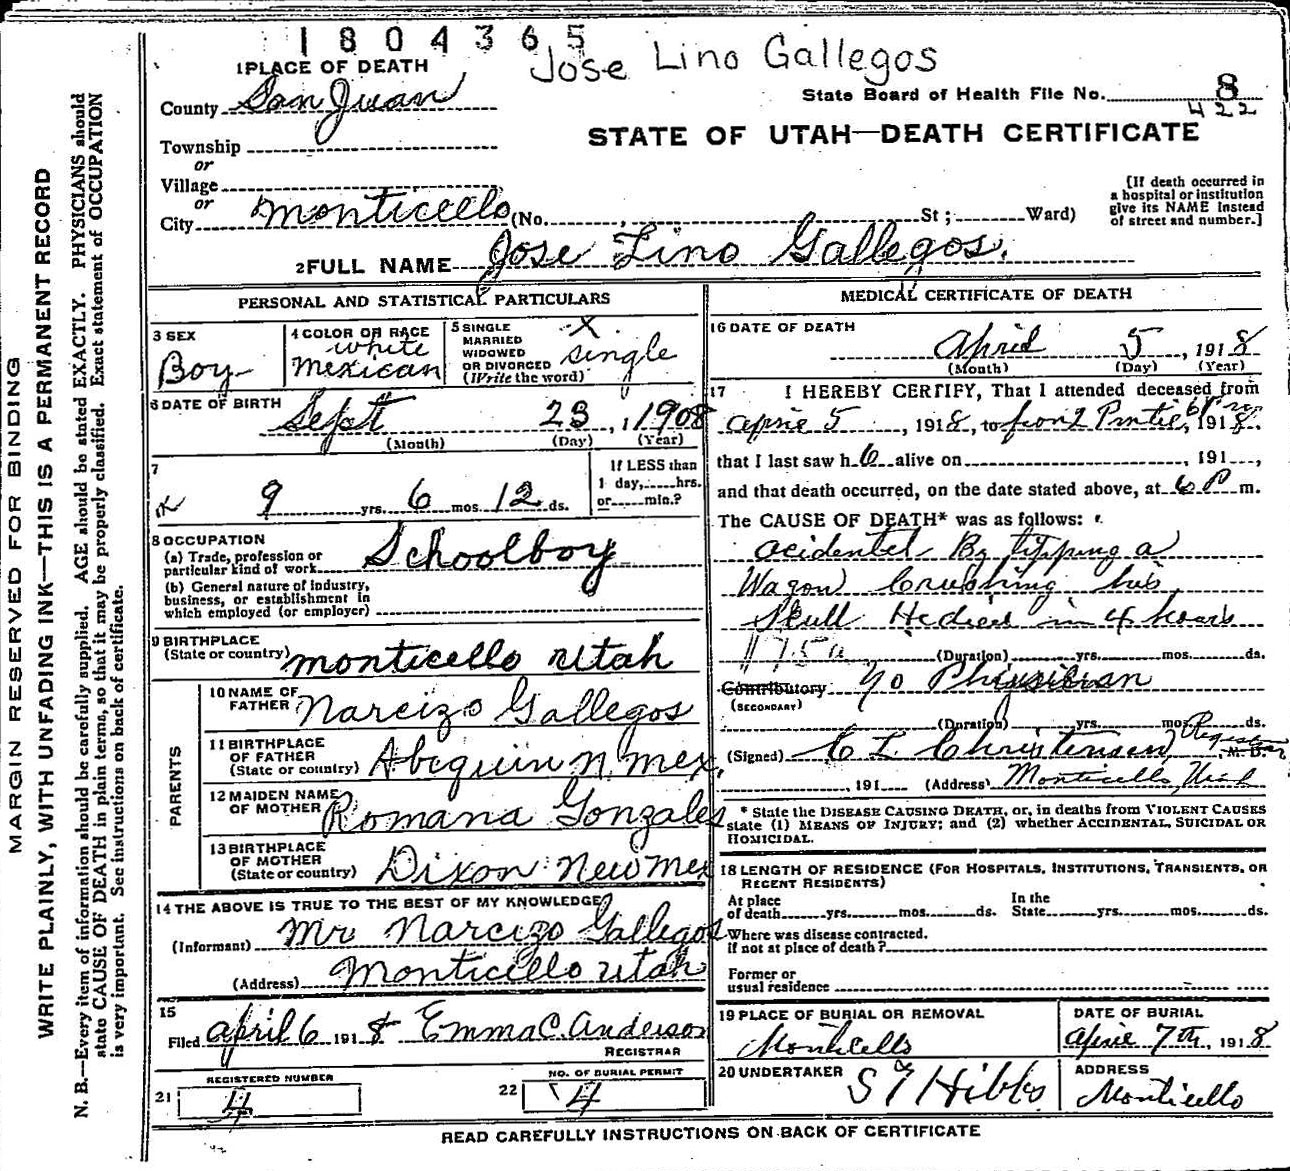 1804365
Jose Lino Gallegos
1 PLACE OF DEATH
County San Juan
State Board of Health File No. 8
422
STATE OF UTAH—DEATH CERTIFICATE
Township
or
Village
or
City Monticello (No. St; Ward)
[If death occurred in
a hospital or institution
give its NAME instead
of street and number.]
2 FULL NAME Jose Lino Gallegos.
PERSONAL AND STATISTICAL PARTICULARS
3 SEX
Boy
4 COLOR OR RACE
white
Mexican
5 SINGLE
MARRIED
WIDOWED
OR DIVORCED
(Write the word)
X
single
6 DATE OF BIRTH
Sept 23, 1908
(Month) (Day) (Year)
7
9 yrs. 6 mos. 12 ds.
If LESS than
1 day, hrs.
or min.?
8 OCCUPATION
(a) Trade, profession or
particular kind of work Schoolboy
(b) General nature of industry,
business, or establishment in
which employed (or employer)
9 BIRTHPLACE
(State or country) Monticello Utah
PARENTS
10 NAME OF
FATHER Narcizo Gallegos
11 BIRTHPLACE
OF FATHER
(State or country) Abiquiin N. Mex.
12 MAIDEN NAME
OF MOTHER Romana Gonzales
13 BIRTHPLACE
OF MOTHER
(State or country) Dixon New Mex
14 THE ABOVE IS TRUE TO THE BEST OF MY KNOWLEDGE
(Informant) Mr Narcizo Gallegos
(Address) Monticello Utah
15
Filed April 6 1918 Emma C. Anderson
REGISTRAR
21 REGISTERED NUMBER
4
22 NO. OF BURIAL PERMIT
4
MEDICAL CERTIFICATE OF DEATH
16 DATE OF DEATH
April 5, 1918
(Month) (Day) (Year)
17 I HEREBY CERTIFY, That I attended deceased from
April 5, 1918, to from 2 Pm til 6 Pm, 1918.
that I last saw h alive on , 191 ,
and that death occurred, on the date stated above, at 6 P m.
The CAUSE OF DEATH* was as follows:
acidentel By tipping a
Wagon Crushing his
Skull He died in 4 hours
175a
(Duration) yrs. mos. ds.
Contributory No Physician
(SECONDARY)
(Duration) yrs. mos. ds.
(Signed) C L Christensen Registrar M. D.
, 191 (Address) Monticello, Utah
* State the DISEASE CAUSING DEATH, or, in deaths from VIOLENT CAUSES
state (1) MEANS OF INJURY; and (2) whether ACCIDENTAL, SUICIDAL OR
HOMICIDAL.
18 LENGTH OF RESIDENCE (FOR HOSPITALS, INSTITUTIONS, TRANSIENTS, OR
RECENT RESIDENTS)
At place
of death yrs. mos. ds.
In the
State yrs. mos. ds.
Where was disease contracted.
if not at place of death?
Former or
usual residence
19 PLACE OF BURIAL OR REMOVAL
Monticello
DATE OF BURIAL
April 7th, 1918
20 UNDERTAKER S Y Hibbs
ADDRESS
Monticello
READ CAREFULLY INSTRUCTIONS ON BACK OF CERTIFICATE
MARGIN RESERVED FOR BINDING
WRITE PLAINLY, WITH UNFADING INK—THIS IS A PERMANENT RECORD
N. B.—Every item of information should be carefully supplied. AGE should be stated EXACTLY. PHYSICIANS should
state CAUSE OF DEATH in plain terms, so that it may be properly classified. Exact statement of OCCUPATION
is very important. See instructions on back of certificate.